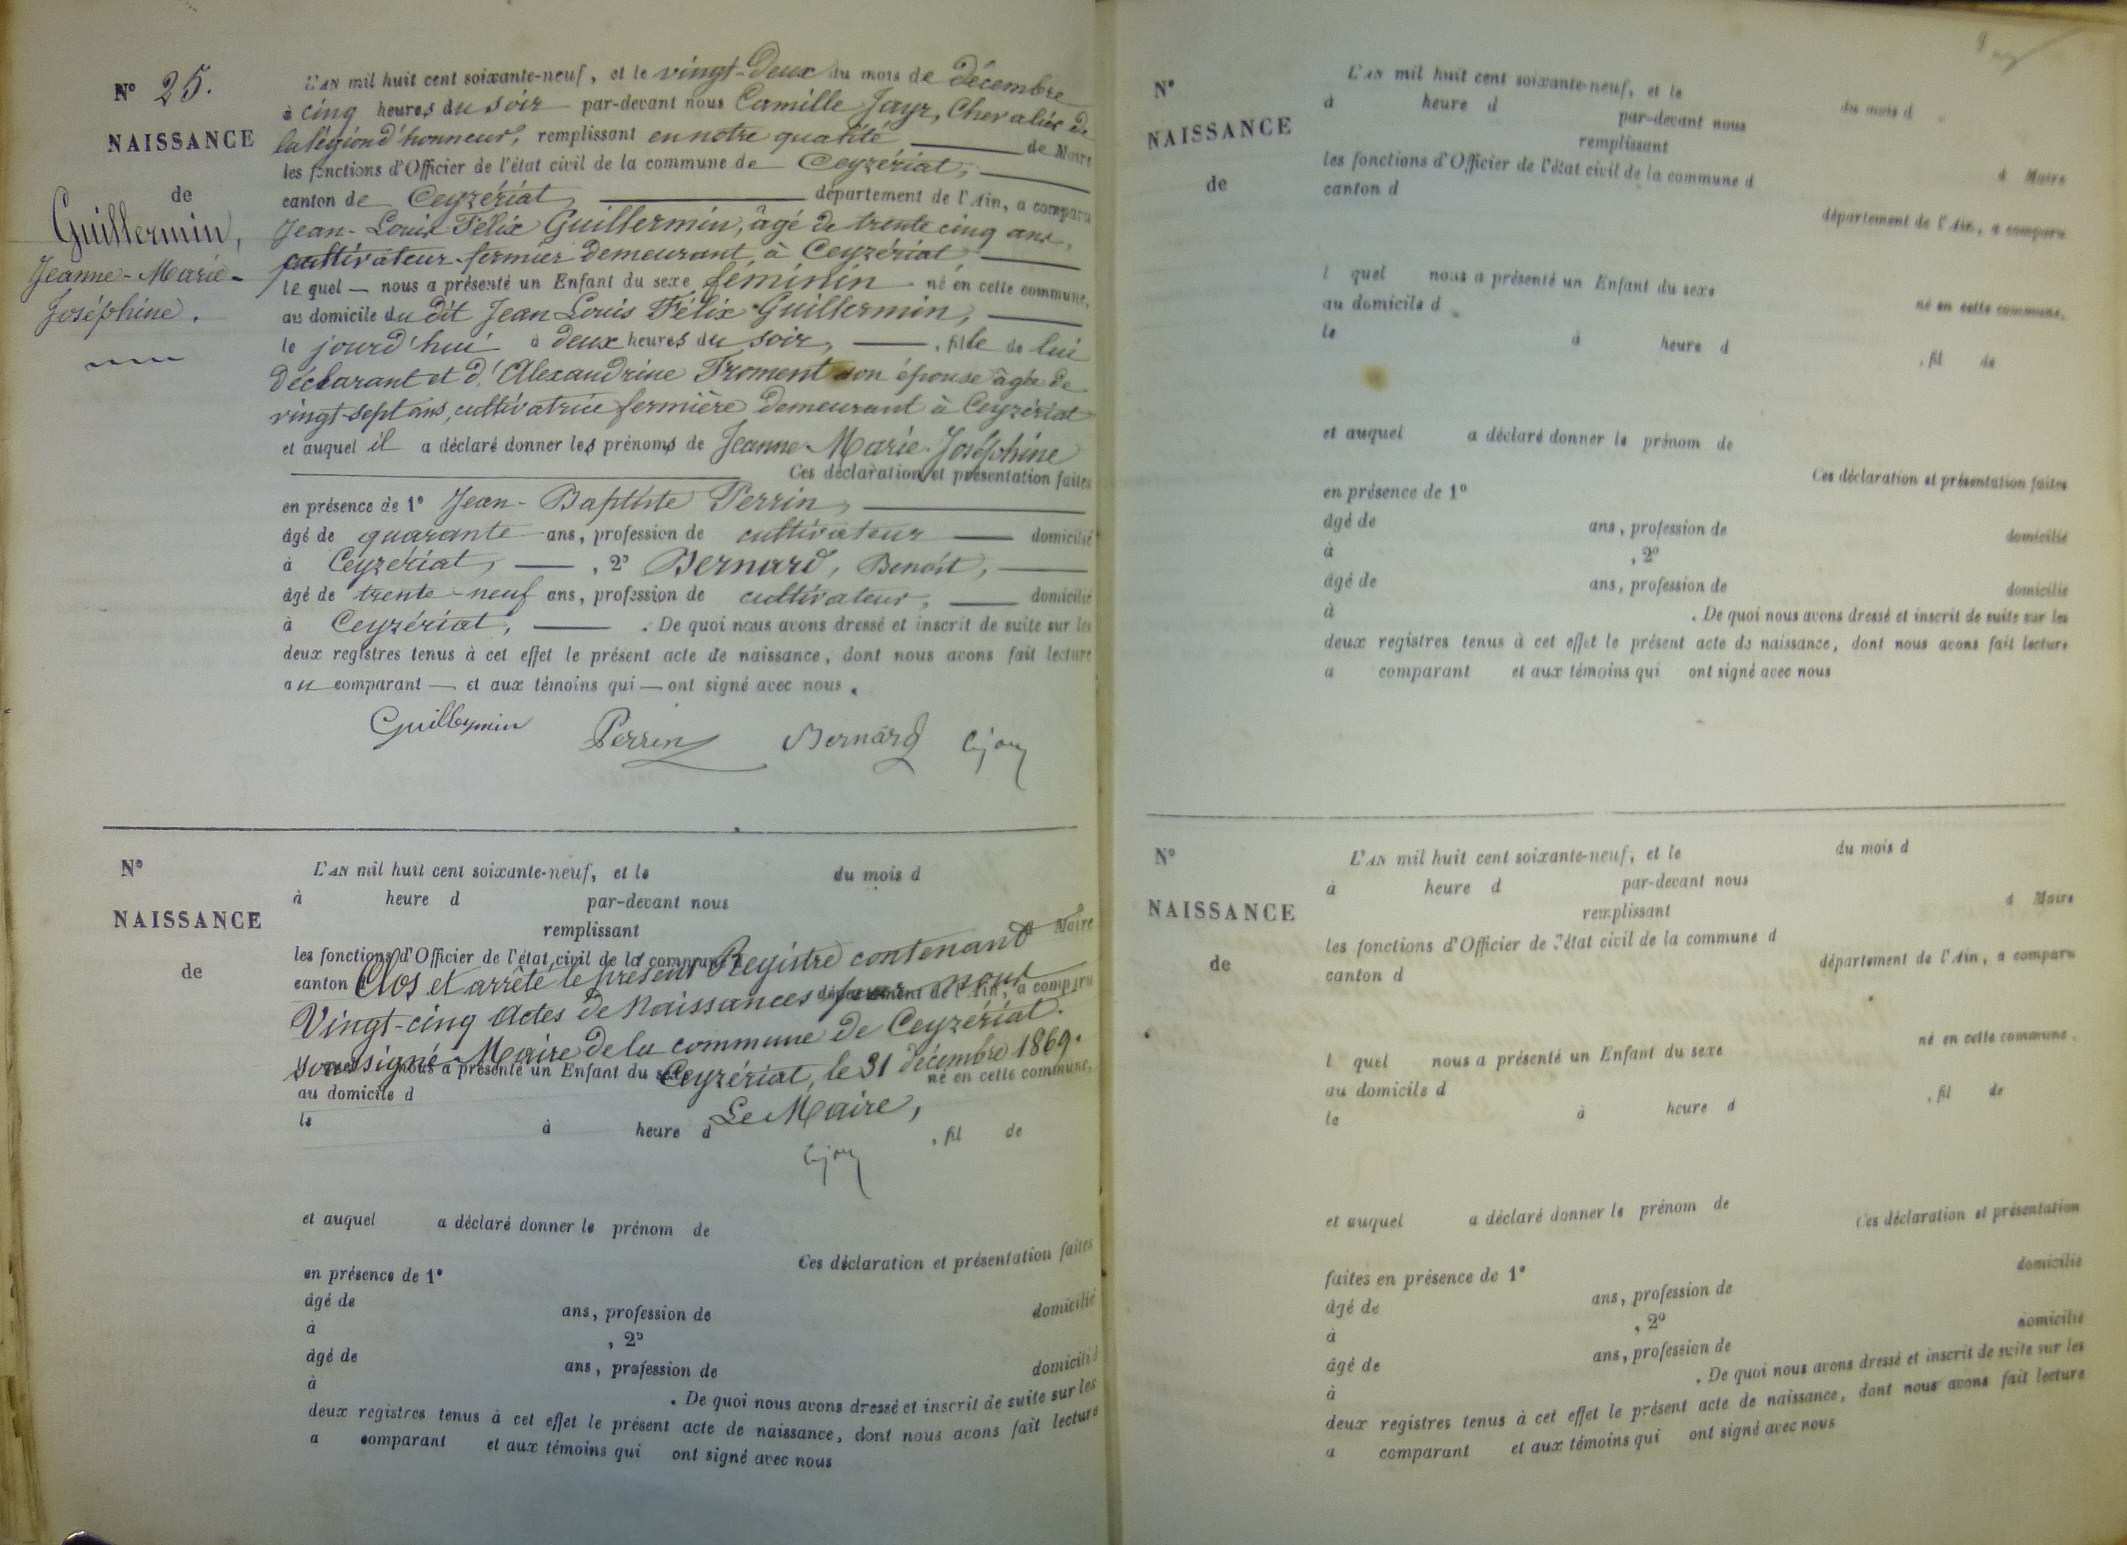 N° 25.
NAISSANCE
de
Guillermin,
Jeanne-Marie-
Joséphine.
L'AN mil huit cent soixante-neuf, et le vingt-deux du mois de décembre
à cinq heures du soir par-devant nous Camille Jayr, Chevalier de
la légion d'honneur, remplissant en notre qualité de Maire
les fonctions d'Officier de l'état civil de la commune de Ceyzériat,
canton de Ceyzériat, département de l'Ain, a comparu
Jean-Louis Félix Guillermin, âgé de trente cinq ans,
cultivateur fermier demeurant à Ceyzériat
le quel — nous a présenté un Enfant du sexe féminin né en cette commune,
au domicile du dit Jean Louis Félix Guillermin,
le jourd'hui à deux heures du soir, , fille de lui
déclarant et d'Alexandrine Froment son épouse âgée de
vingt-sept ans, cultivatrice fermière demeurant à Ceyzériat
et auquel il a déclaré donner les prénoms de Jeanne-Marie-Joséphine
Ces déclaration et présentation faites
en présence de 1° Jean-Baptiste Perrin,
âgé de quarante ans, profession de cultivateur domicilié
à Ceyzériat, , 2° Bernard, Benoît,
âgé de trente-neuf ans, profession de cultivateur, domicilié
à Ceyzériat, . De quoi nous avons dressé et inscrit de suite sur les
deux registres tenus à cet effet le présent acte de naissance, dont nous avons fait lecture
au comparant — et aux témoins qui — ont signé avec nous.
Guillermin Perrin Bernard
N°
NAISSANCE
de
L'AN mil huit cent soixante-neuf, et le du mois d
à heure d par-devant nous
remplissant d Maire
les fonctions d'Officier de l'état civil de la commune d
canton d département de l'Ain, a comparu
Clos et arrêté le présent Registre contenant
Vingt-cinq Actes de Naissances par nous
soussigné Maire de la commune de Ceyzériat.
Ceyzériat, le 31 décembre 1869.
Le Maire,
nous a présenté un Enfant du sexe né en cette commune,
au domicile d
le à heure d , fil de
et auquel a déclaré donner le prénom de
Ces déclaration et présentation faites
en présence de 1°
âgé de ans, profession de domicilié
à , 2°
âgé de ans, profession de domicilié
à . De quoi nous avons dressé et inscrit de suite sur les
deux registres tenus à cet effet le présent acte de naissance, dont nous avons fait lecture
a comparant et aux témoins qui ont signé avec nous
N°
NAISSANCE
de
L'AN mil huit cent soixante-neuf, et le du mois d
à heure d par-devant nous
remplissant d Maire
les fonctions d'Officier de l'état civil de la commune d
canton d département de l'Ain, a comparu
l quel nous a présenté un Enfant du sexe né en cette commune,
au domicile d
le à heure d , fil de
et auquel a déclaré donner le prénom de
Ces déclaration et présentation faites
en présence de 1°
âgé de ans, profession de domicilié
à , 2°
âgé de ans, profession de domicilié
à . De quoi nous avons dressé et inscrit de suite sur les
deux registres tenus à cet effet le présent acte de naissance, dont nous avons fait lecture
a comparant et aux témoins qui ont signé avec nous
N°
NAISSANCE
de
L'AN mil huit cent soixante-neuf, et le du mois d
à heure d par-devant nous
remplissant d Maire
les fonctions d'Officier de l'état civil de la commune d
canton d département de l'Ain, a comparu
l quel nous a présenté un Enfant du sexe né en cette commune,
au domicile d
le à heure d , fil de
et auquel a déclaré donner le prénom de
Ces déclaration et présentation
faites en présence de 1° domicilié
âgé de ans, profession de
à , 2° domicilié
âgé de ans, profession de
à . De quoi nous avons dressé et inscrit de suite sur les
deux registres tenus à cet effet le présent acte de naissance, dont nous avons fait lecture
a comparant et aux témoins qui ont signé avec nous